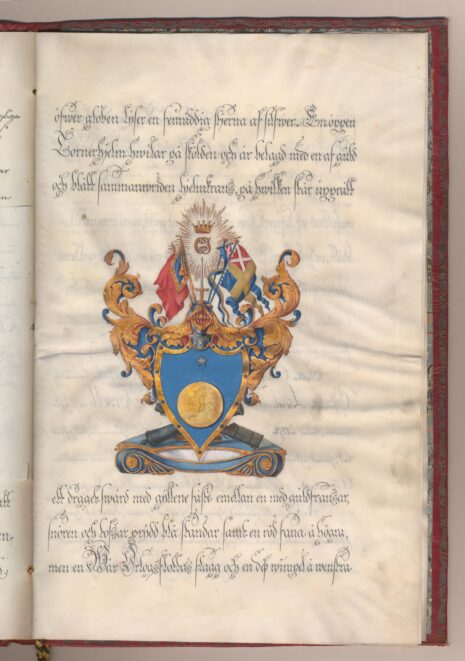 öfwer globen lyser en femuddig stjerna af silfwer. En öppen
Tornerhjelm hwilar på skölden och är belagd med en af guld
och blått sammanwriden hjelmkrans, på hwilken står upprätt
ett draget swärd med gyllene fäste emellan en med guldfransar,
snören och tofsar prydd blå standar samt en röd fana å högra,
men en Wår Örlogsflottas flagg och en dess wimpel å wenstra